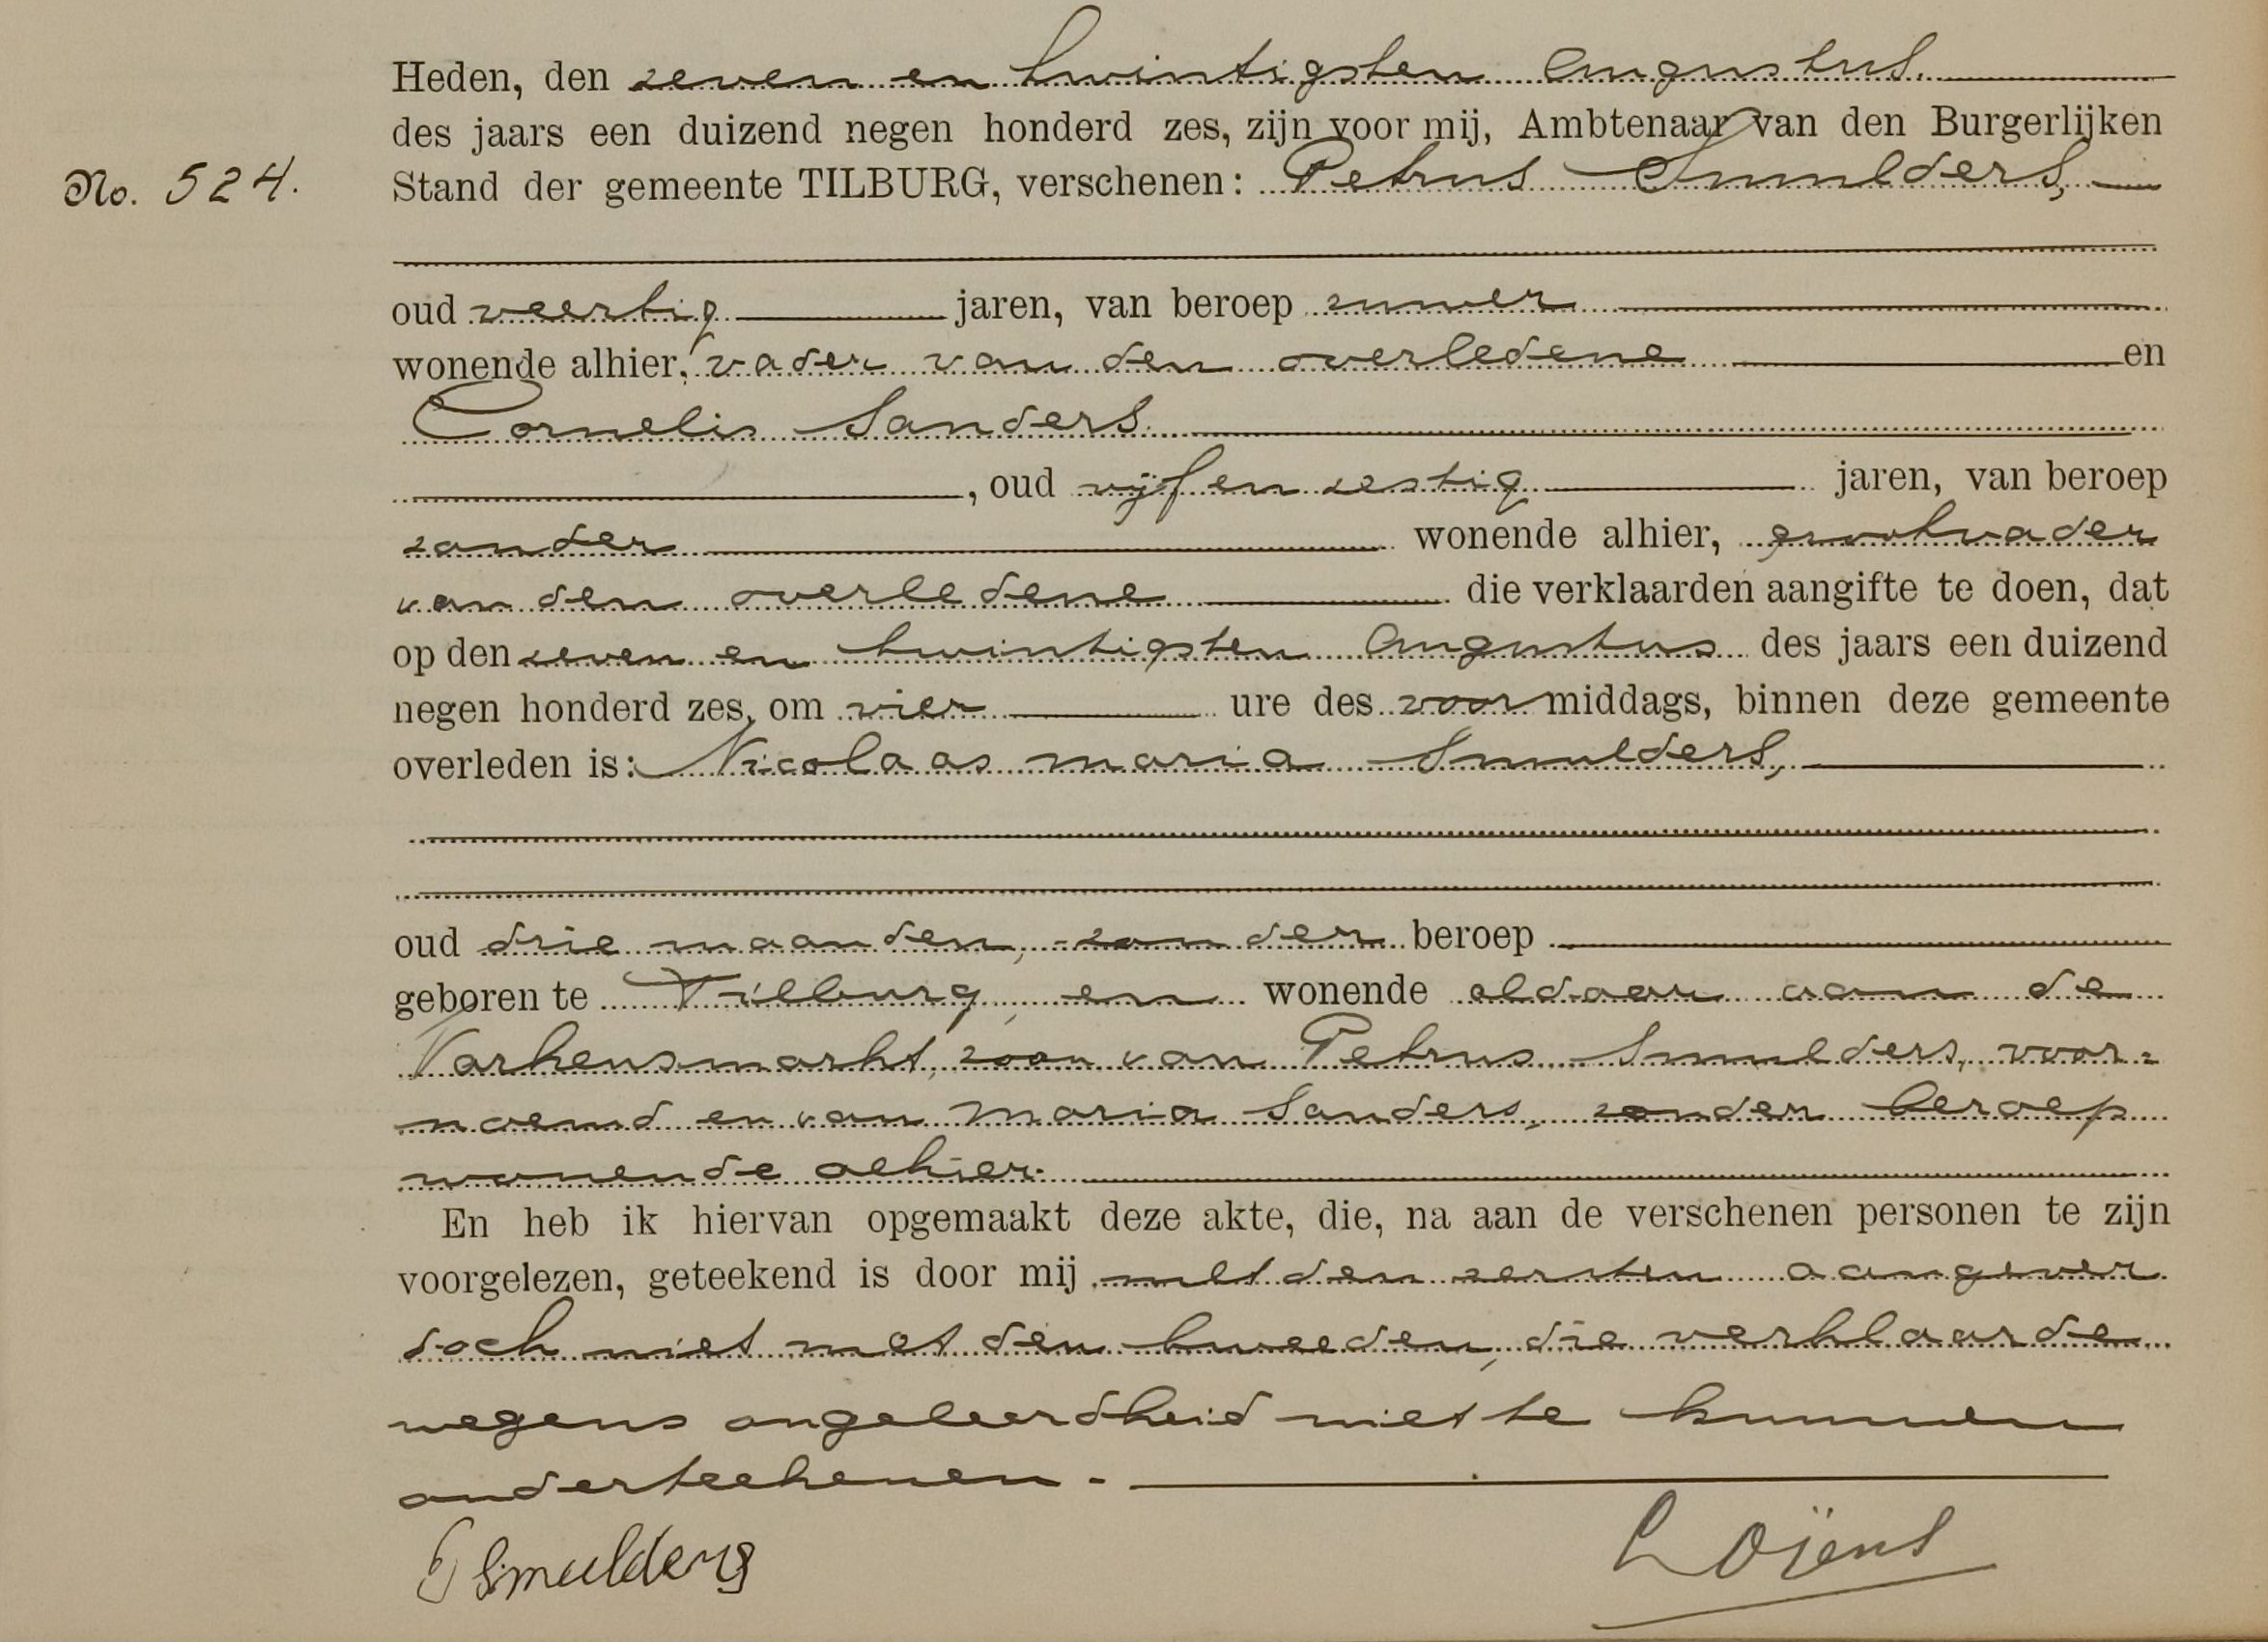 Heden, den zeven en twintigsten Augustus.
des jaars een duizend negen honderd zes, zijn voor mij, Ambtenaar van den Burgerlijken
No. 524. Stand der gemeente TILBURG, verschenen: Petrus Smulders,
oud veertig jaren, van beroep
wonende alhier, vader van den overledene en
Cornelis Sanders.
, oud vijf en zestig jaren, van beroep
zonder wonende alhier, grootvader
van den overledene die verklaarden aangifte te doen, dat
op den zeven en twintigsten Augustus des jaars een duizend
negen honderd zes, om vier ure des voormiddags, binnen deze gemeente
overleden is: Nicolaas Maria Smulders,
oud drie maanden, zonder beroep
geboren te Tilburg, en wonende aldaar aan de
Varkensmarkt, zoon van Petrus Smulders, voor=
noemd en van Maria Sanders, zonder beroep
wonende alhier.
En heb ik hiervan opgemaakt deze akte, die, na aan de verschenen personen te zijn
voorgelezen, geteekend is door mij met den eersten aangever
doch niet met den tweeden, die verklaarde
wegens ongeleerdheid niet te kunnen
onderteekenen.
P Smulders Loijens